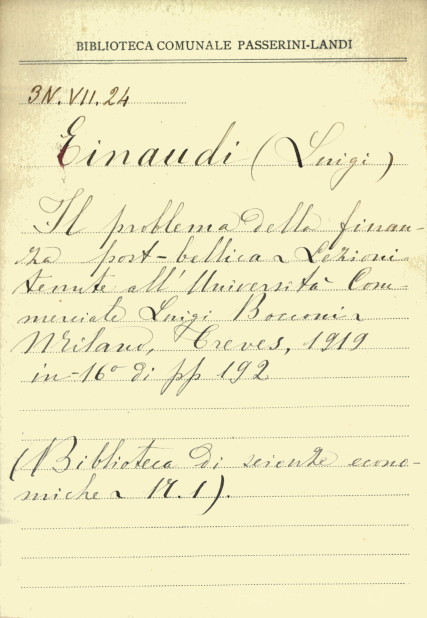 BIBLIOTECA COMUNALE PASSERINI-LANDI
3N.VII.24
Einaudi (Luigi)
Il problema della finan-
za post-bellica ~ Lezioni
tenute all' Università Com-
merciale Luigi Bocconi ~
Milano, Treves, 1919
in-16° di pp 192
(Biblioteca di scienze econo-
miche ~ N. 1).